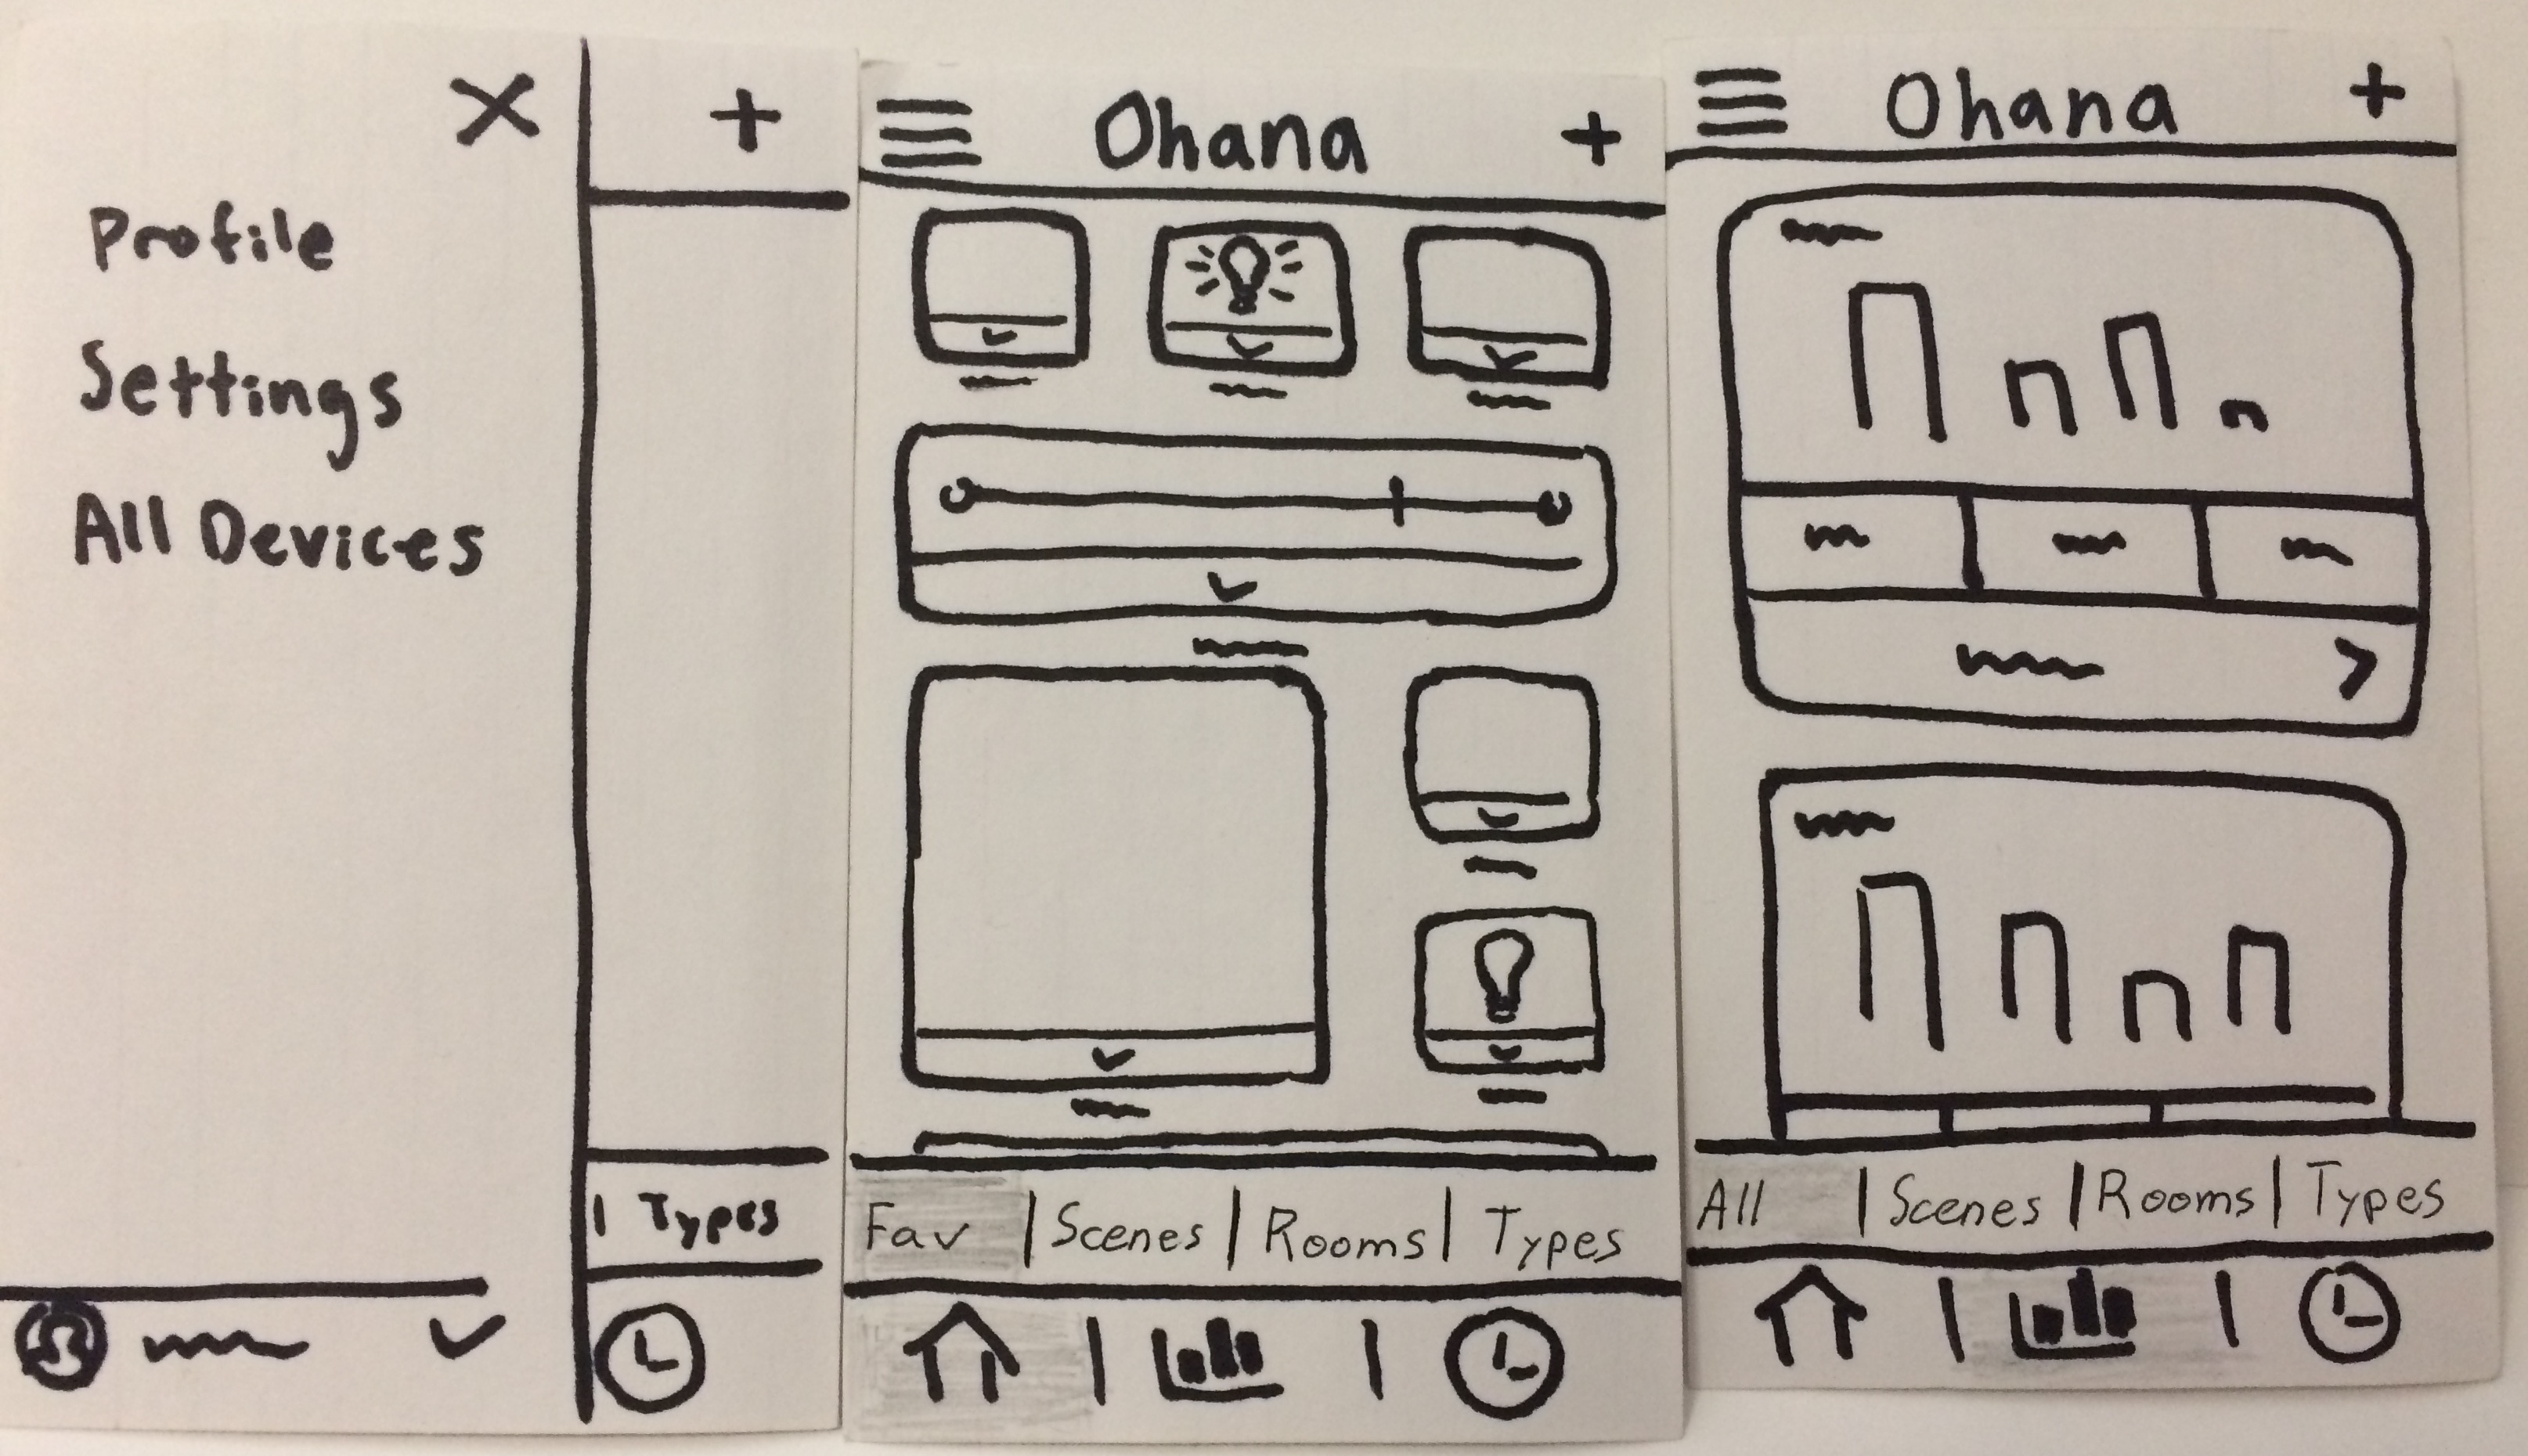 +
Profile
Settings
All Devices
| Types
Ohana +
Fav | Scenes | Rooms | Types
Ohana +
All | Scenes | Rooms | Types